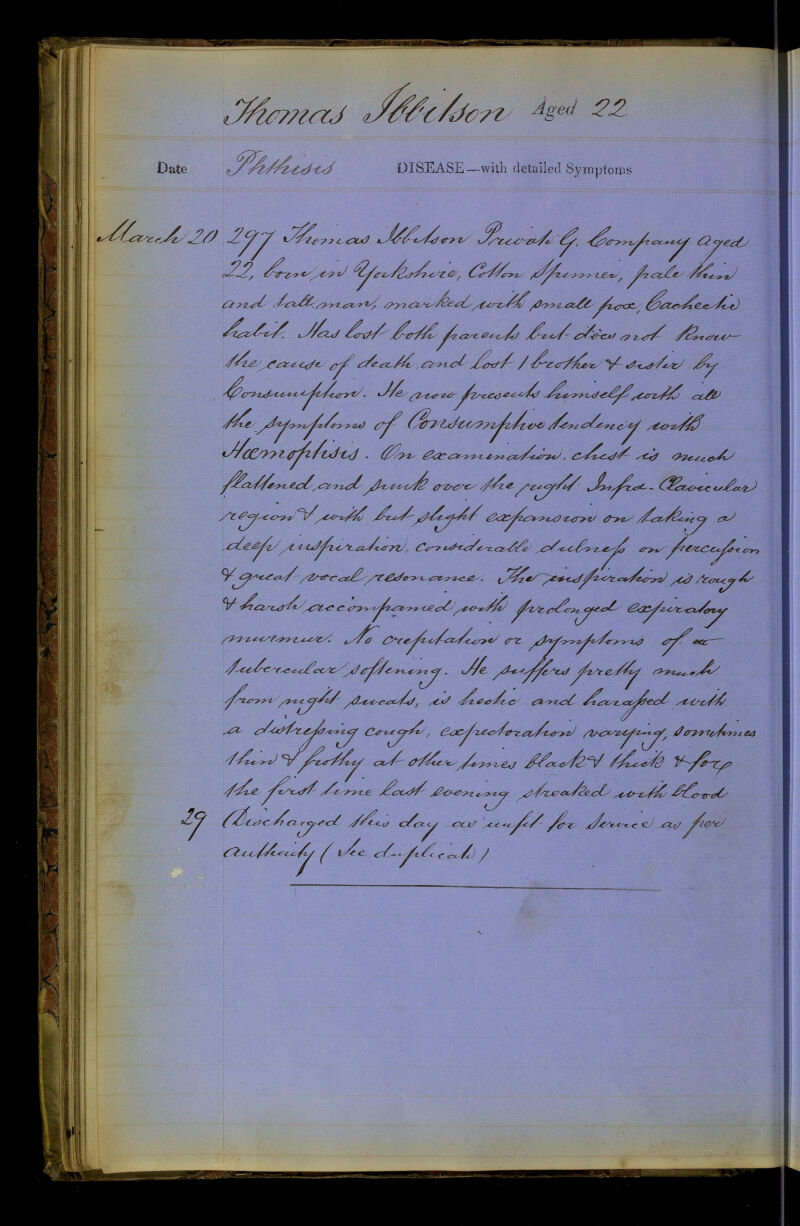 Thomas Ibbitson Aged 22
Date Phthisis DISEASE—with detailed Symptoms
March 20 297 Thomas Ibbitson Private G. Company aged
22, born in Yorkshire, Cotton Spinner, pale thin
and tall man, marked with small pox, Cachectic
habit. Has lost both parents but does not Know
the cause of death and lost 1 brother & sister by
Consumption. He now presents himself with all
the symptoms of Consumptive tendency with
Hæmoptisis. On examination, chest is much
flattened and sunk over the right Infra-Clavicular
region & with but slight expansion on taking a
deep inspiration, considerable dulness on percussion
& great vocal resonance. The inspiration is rough
& harsh accompanied with prolonged expiratory
murmur. No crepitation or symptoms of
tubercular softening. He suffers pretty much
from night sweats, is hectic and harassed with
a distressing cough, expectoration varying, sometimes
thin & frothy at other times black & thick & for
the first time last evening streaked with blood
29 Discharged this day as unfit for service as per
authority (See duplicate)